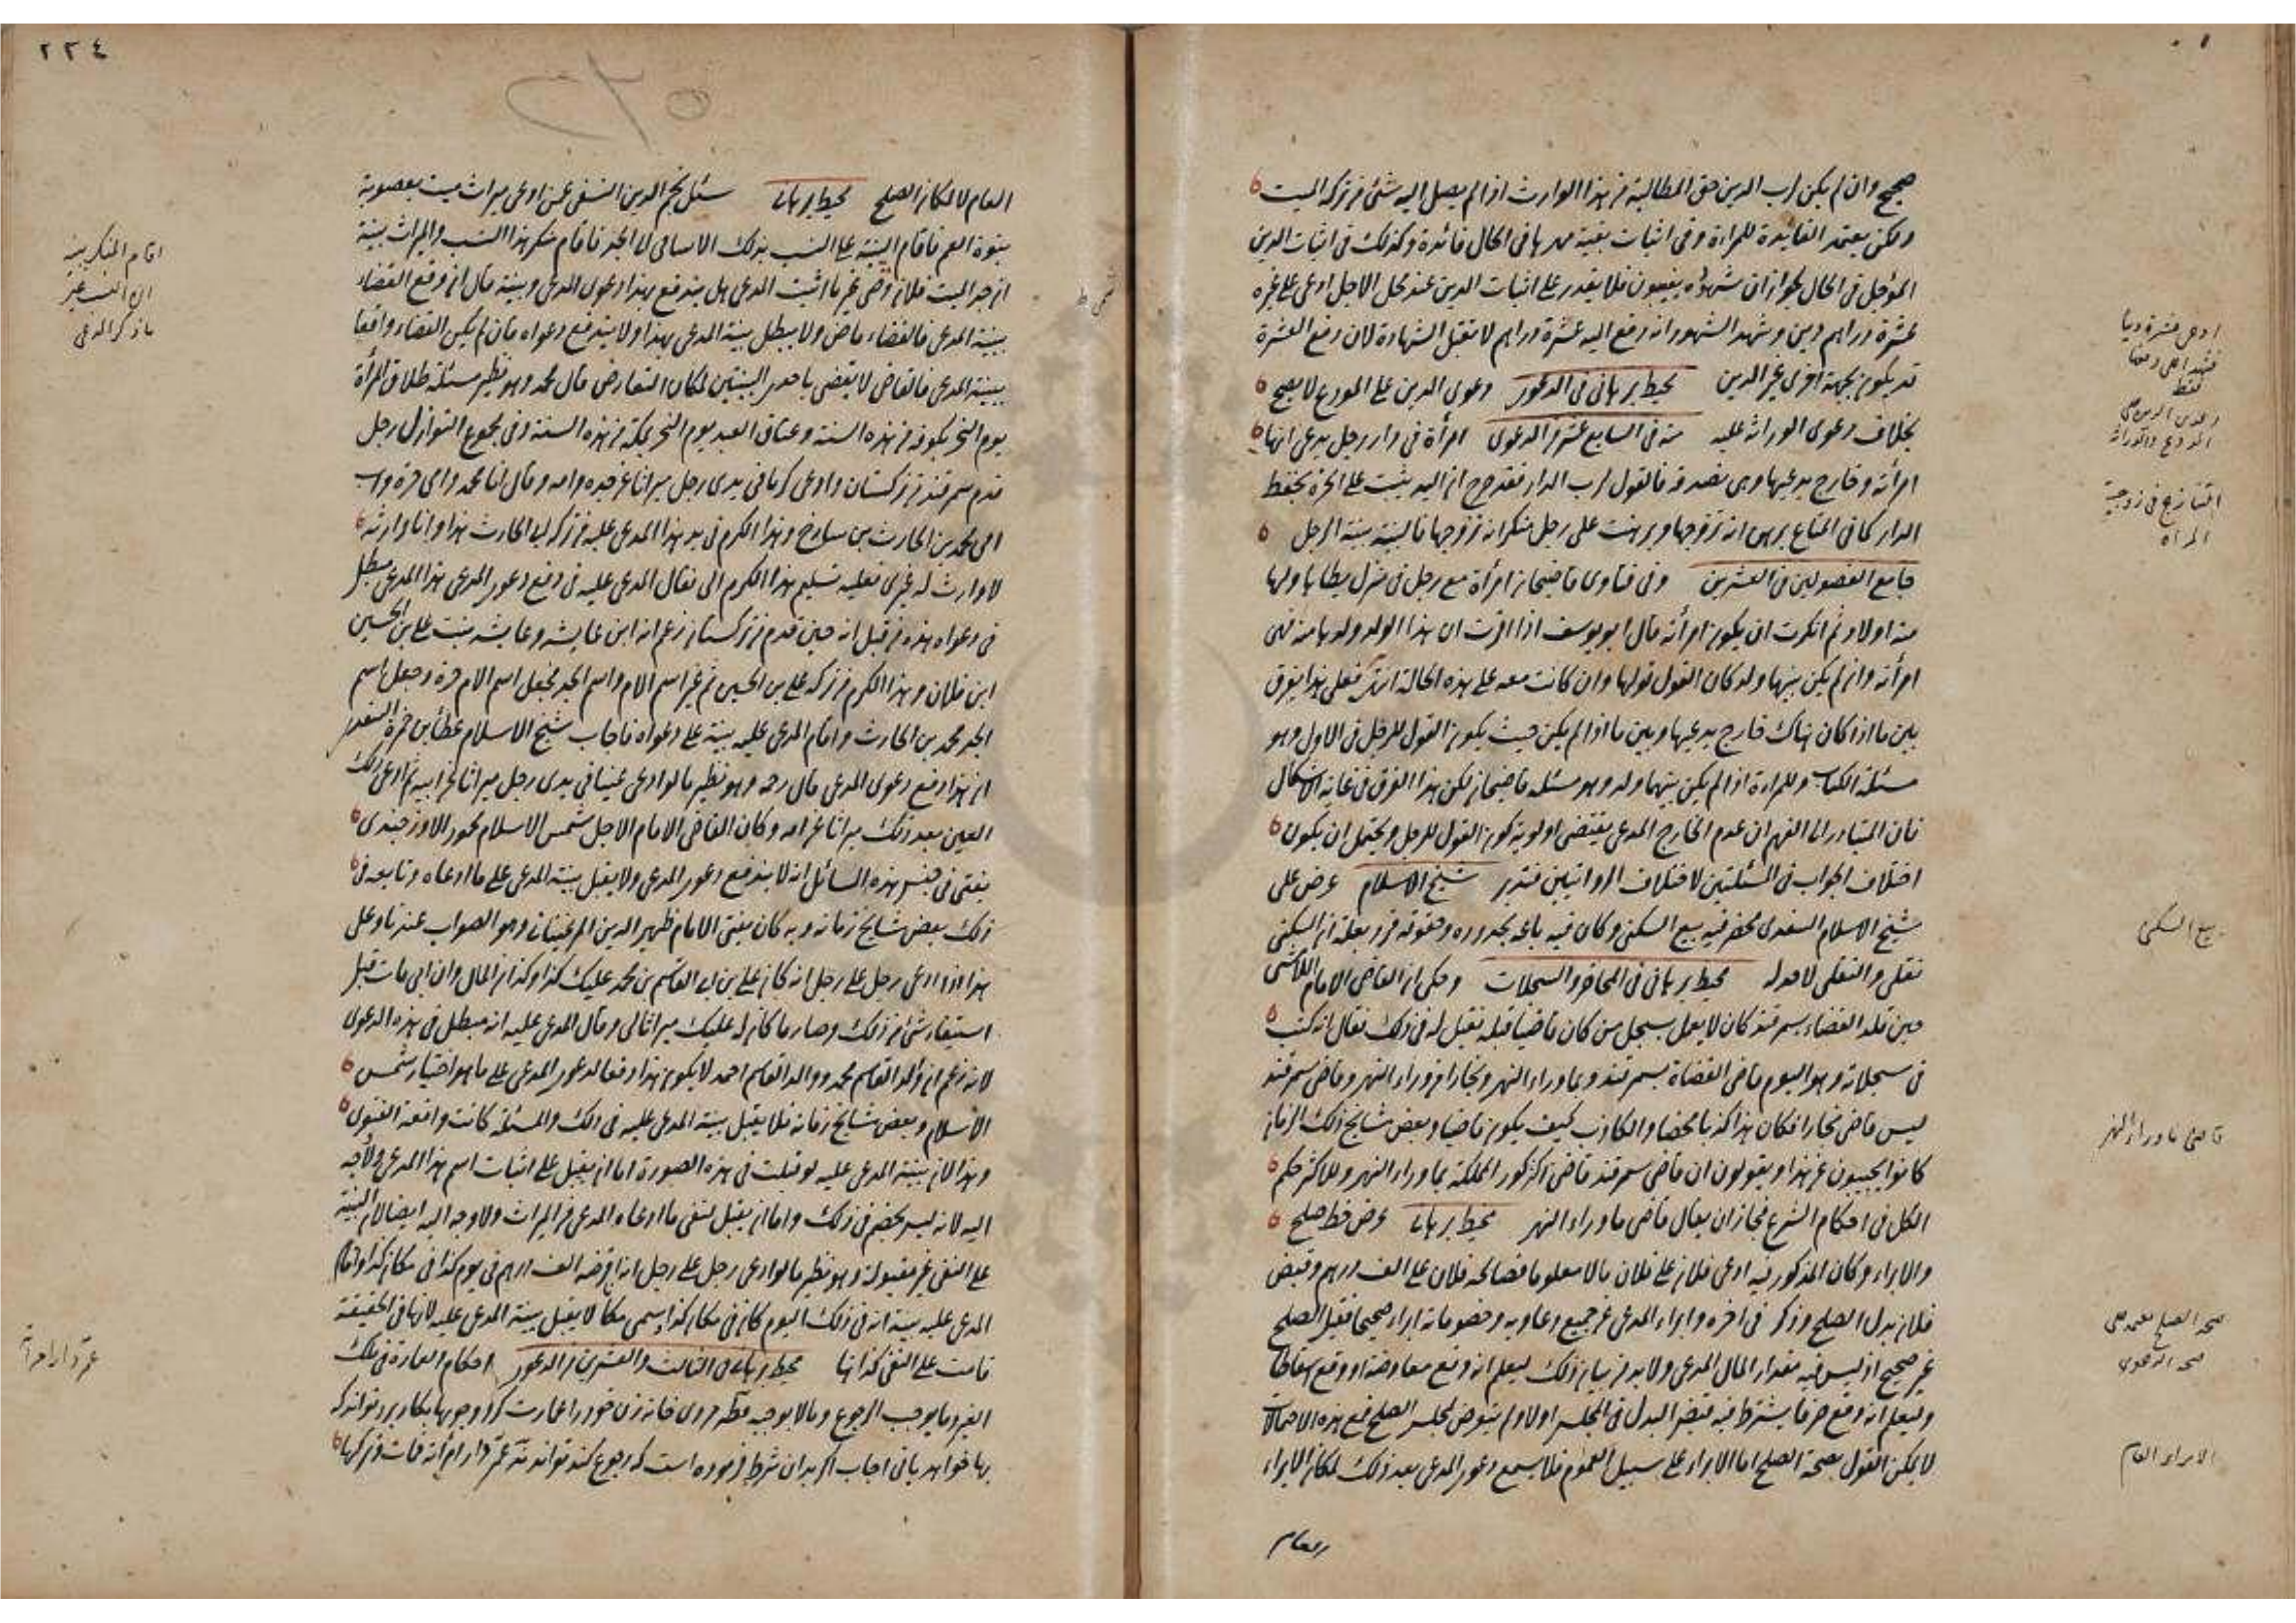 صحيح وان لم يكن لرب الدين حق المطالبة من هذا الوارث اذا لم يصل اليه شئ من تركة الميت
ولكن يعتمد الفائدة للمراة وفى اثبات بقية مهرها فى الحال فائدة وكذلك فى اثبات الدين
المؤجل فى الحال لجواز ان شهوده يغيبون فلا يقدر على اثبات الدين عند محل الاجل ادعى على غيره
عشرة دراهم دين وشهد الشهود انه دفع اليه عشرة دراهم لا تقبل الشهادة لان دفع العشرة
قد يكون بجهة اخرى غير الدين محيط برهانى فى الدعوى دعوى الدين على المودع لا يصح
بخلاف دعوى الوراثة عليه منه فى السابع عشر من الدعوى امرأة فى دار رجل يدعى انها
امرأته وخارج يدعيها وهى تصدقه فالقول لرب الدار فقد صرح ان اليد يثبت على الحرة بحفظ
الدار كما فى المتاع برهن انه تزوجها وبرهنت على رجل منكر انه تزوجها فالبينة بينة الرجل
جامع الفصولين فى العشرين وفى فتاوى قاضيخان امرأة مع رجل فى منزل يطأها ولها
منه اولاد ثم انكرت ان يكون امرأته قال ابو يوسف اذا اقرت ان هذا الولد ولدها منه فهى
امرأته وان لم يكن بينهما ولد كان القول قولها وان كانت معه على هذه الحالة انتهى فعلى هذا يفرق
بين ما اذا كان هناك خارج يدعيها وبين ما اذا لم يكن حيث يكون القول للرجل فى الاول وهو
مسئلة الكتاب وللمراة اذا لم يكن بينهما ولد وهو مسئلة قاضيخان لكن هذا الفرق فى غاية الاشكال
فان المتبادر الى الفهم ان عدم الخارج المدعى يقتضى اولوية كون القول للرجل ويحتمل ان يكون
اختلاف الجواب فى المسئلتين لاختلاف الروايتين فتدبر شيخ الاسلام عرض على
شيخ الاسلام السغدى محضر فيه بيع السكنى وكان فيه باعه بحدوده وحقوقه فرد بعلة ان السكنى
نقلى والنقلى لا حد له محيط برهانى فى المحاضر والسجلات وحكى ان القاضى الامام
حين قلد القضاء بسمرقند كان لا يعمل بسجل من كان قاضيا قبله فقيل له فى ذلك فقال انه كتب
فى سجلاته وهو اليوم قاضى القضاة بسمرقند وبما وراء النهر وبخارا من وراء النهر وقاضى سمرقند
ليس قاضى بخارا فكان هذا كذبا محضا والكاذب كيف يكون قاضيا وبعض مشايخ ذلك الزمان
كانوا يجيبون عن هذا ويقولون ان قاضى سمرقند قاضى اكثر كور المملكة بما وراء النهر وللاكثر حكم
الكل فى احكام الشرع فجاز ان يقال قاضى ما وراء النهر محيط برهانى عرض خط صلح
والابراء وكان المذكور فيه ادعى فلان على فلان مالا معلوما فصالحه فلان على الف درهم وقبض
فلان بدل الصلح وذكر فى اخره وابراء المدعى عن جميع دعاويه وخصوماته ابراء صحيحا فقيل الصلح
غير صحيح اذ ليس فيه مقدار المال المدعى ولا بد من بيان ذلك ليعلم انه وقع معاوضة او وقع اسقاطا
وليعلم انه وقع صرفا يشترط فيه قبض البدل فى المجلس اولا ولم يتعرض لمجلس الصلح فمع هذه الاحتمالات
لا يمكن القول بصحة الصلح اما الابراء على سبيل العموم فلا يسمع دعوى المدعى بعد ذلك لمكان الابراء
العام
بيع السكنى
قاضى ما وراء النهر
صحة الصلح يعتمد على
صحة الدعوى
الابراء العام
التنازع فى زوجية
المراة
٢٢٤
العام لا لمكان الصلح محيط برهانى سئل نجم الدين النسفى عمن ادعى ميراث ميت بعصوبة
بنوة العم فاقام البينة على النسب بذكر الاسامى الى الجد فاقام منكر هذا النسب والميراث بينة
ان جد الميت فلان وهى غير ما اثبت المدعى هل يندفع بهذا دعوى المدعى وبينته قال ان وقع القضاء
ببينة المدعى فالقضاء ماض ولا يبطل بينة المدعى بهذا ولا يندفع دعواه فان لم يكن القضاء واقعا
ببينة المدعى فالقاضى لا يقضى باحدى البينتين لمكان التعارض قال محمد وهو نظير مسئلة طلاق المرأة
يوم النحر بكوفة من هذه السنة وعتاق العبد يوم النحر بمكة من هذه السنة وفى مجموع النوازل رجل
قدم سمرقند من تركستان وادعى كرما فى يدى رجل ميراثا عن جده وامه وقال انا محمد وامى حرة واب
امى محمد بن الحارث بن وهذا الكرم فى يد هذا المدعى عليه من تركة الحارث هذا وانا وارثه
لا وارث له غيرى فعليه تسليم هذا الكرم الى فقال المدعى عليه فى دفع دعوى المدعى هذا المدعى مبطل
فى دعواه هذه من قبل انه حين قدم من تركستان زعم انه ابن عايشة وعايشة بنت على بن الحسين
ابن فلان وهذا الكرم من تركة على بن الحسين ثم غير اسم الام واسم الجد فجعل اسم الام حرة وجعل اسم
الجد محمد بن الحارث واقام المدعى عليه بينة على دعواه فاجاب شيخ الاسلام عطاء بن حمزة السغدى
ان هذا دفع دعوى المدعى قال رحمه وهو نظير ما لو ادعى عينا فى يدى رجل ميراثا عن ابيه ثم ادعى ذلك
العين بعد ذلك ميراثا عن امه وكان القاضى الامام الاجل شمس الاسلام محمود الاوزجندى
يفتى فى جنس هذه المسائل انه لا يندفع دعوى المدعى ولا يقبل بينة المدعى على ما ادعاه وتابعه فى
ذلك بعض مشايخ زمانه وبه كان يفتى الامام ظهير الدين المرغينانى وهو الصواب عندنا وعلى
هذا اذا ادعى رجل على رجل انه كان على بن ابى القاسم بن محمد عليك كذا وكذا من المال وان ابى مات قبل
استيفاء شئ من ذلك وصار ما كان له عليك ميراثا لى وقال المدعى عليه انه مبطل فى هذه الدعوى
لانه زعم ان والد القاسم محمد ووالد القاسم احمد لا يكون هذا دفعا لدعوى المدعى على ما هو اختيار شمس
الاسلام وبعض مشايخ زمانه فلا يقبل بينة المدعى عليه فى ذلك والمسئلة كانت واقعة الفتوى
وهذا لان بينة المدعى عليه لو قبلت فى هذه الصورة اما ان يقبل على اثبات اسم هذا المدعى ولا وجه
اليه لانه ليس بخصم فى ذلك واما ان يقبل لنفى ما ادعاه المدعى من الميراث ولا وجه اليه ايضا لان البينة
على النفى غير مقبولة وهو نظير ما لو ادعى رجل على رجل انه اقرضه الف درهم فى يوم كذا فى مكان كذا واقام
المدعى عليه بينة انه فى ذلك اليوم كان فى مكان كذا سمى مكانا لا يقبل بينة المدعى عليه لانها فى الحقيقة
قامت على النفى كذا هنا محيط برهانى فى الثالث والعشرين من الدعوى احكام العمارة فى ملك
الغير وما يوجب الرجوع وما لا يوجبه مردى خانه زن خود را عمارت كرد وچوبها بكار برد تواند كه
بها خواهد يا نى اجاب اكر بدان شرط فرموده است كه رجوع كند تواند عمر دار امرأته فمات وتركها
اقام المنكر بينة
ان النسب غير
ما ذكر المدعى
عمر دار امرأته